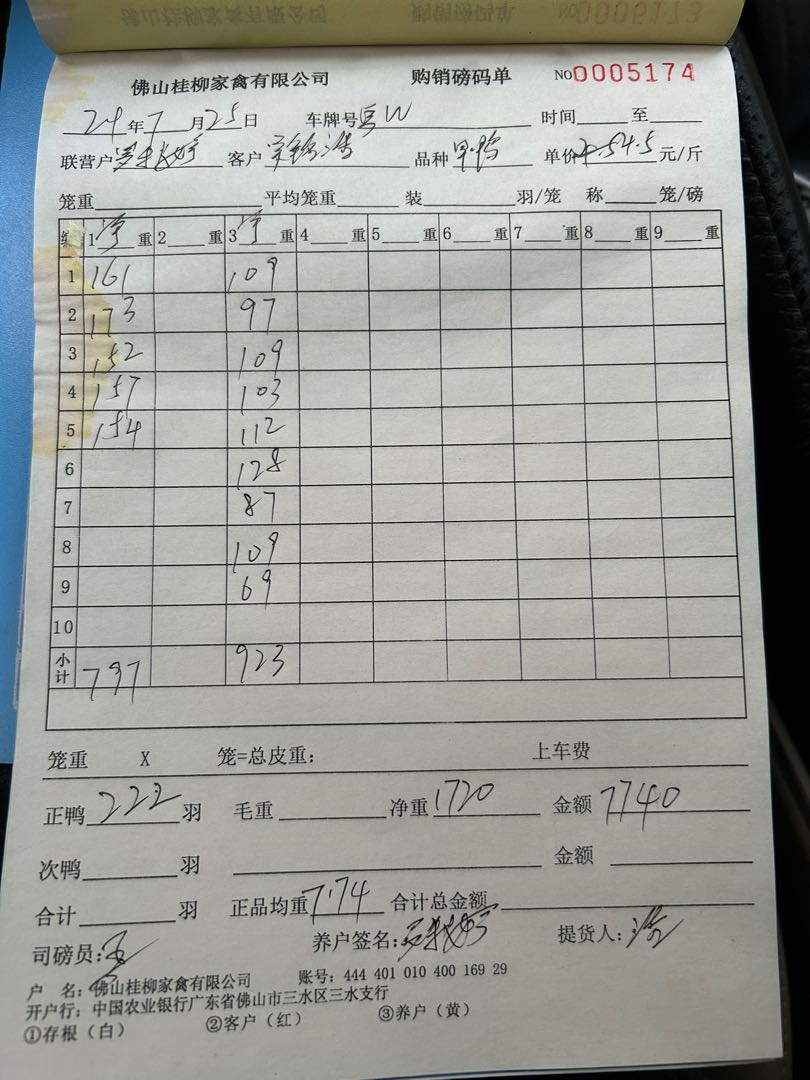 佛山桂柳家禽有限公司 购销磅码单 NO 0005174
24年7月25日 车牌号 W 时间 至
联营户 客户 品种 单价 4.5 元/斤
笼重 平均笼重 装 羽/笼 称 笼/磅
1 净 重 2 重 3 净 重 4 重 5 重 6 重 7 重 8 重 9 重
1 161 109
2 173 97
3 152 109
4 157 103
5 154 112
6 128
7 87
8 109
9 69
10
小计 797 923
笼重 X 笼=总皮重: 上车费
正鸭 222 羽 毛重 净重 1720 金额 7740
次鸭 羽 金额
合计 羽 正品均重 7.74 合计总金额
司磅员: 养户签名: 提货人:
户 名: 佛山桂柳家禽有限公司 账号: 444 401 010 400 169 29
开户行: 中国农业银行广东省佛山市三水区三水支行
①存根（白） ②客户（红） ③养户（黄）